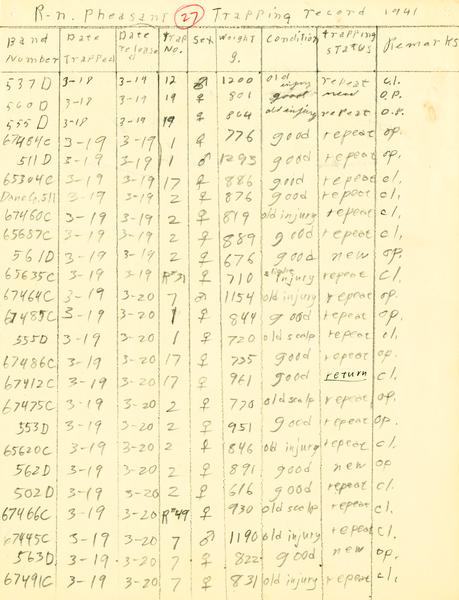 R-n. Pheasant 27 Trapping record 1941
Band Number Date Trapped Date released Trap No. Sex Weight g. Condition trapping status Remarks
537D 3-18 3-19 12 ♂ 1200 old injury repeat cl.
560D 3-18 3-19 19 ♀ 801 good new O.P.
555D 3-18 3-19 19 ♀ 864 old injury repeat O.P.
67484C 3-19 3-19 1 ♀ 776 good repeat op.
511D 3-19 3-19 1 ♂ 1293 good repeat op.
65304C 3-19 3-19 17 ♀ 886 good repeat cl.
Dane G.511 3-19 3-19 2 ♀ 876 good repeat cl.
67460C 3-19 3-19 2 ♀ 819 old injury repeat cl.
65637C 3-19 3-19 2 ♀ 889 good repeat cl.
561D 3-19 3-19 2 ♀ 676 good new op.
65635C 3-19 3-19 ♀ 710 slight injury repeat cl.
67464C 3-19 3-20 7 ♂ 1154 old injury repeat op.
67485C 3-19 3-20 1 ♀ 844 good repeat op.
355D 3-19 3-20 1 ♀ 720 old scalp repeat cl.
67486C 3-19 3-20 17 ♀ 735 good repeat op.
67412C 3-19 3-20 17 ♀ 961 good return cl.
67475C 3-19 3-20 2 ♀ 770 old scalp repeat op.
353D 3-19 3-20 2 ♀ 951 good repeat op.
65620C 3-19 3-20 2 ♀ 846 old injury repeat cl.
562D 3-19 3-20 2 ♀ 891 good new op
502D 3-19 3-20 2 ♀ 616 good repeat cl.
67466C 3-19 3-20 R#49 ♀ 930 old scalp repeat cl.
67445C 3-19 3-20 7 ♂ 1190 old injury repeat cl.
563D 3-19 3-20 7 ♀ 822 good new op.
67491C 3-19 3-20 7 ♀ 831 old injury repeat cl.